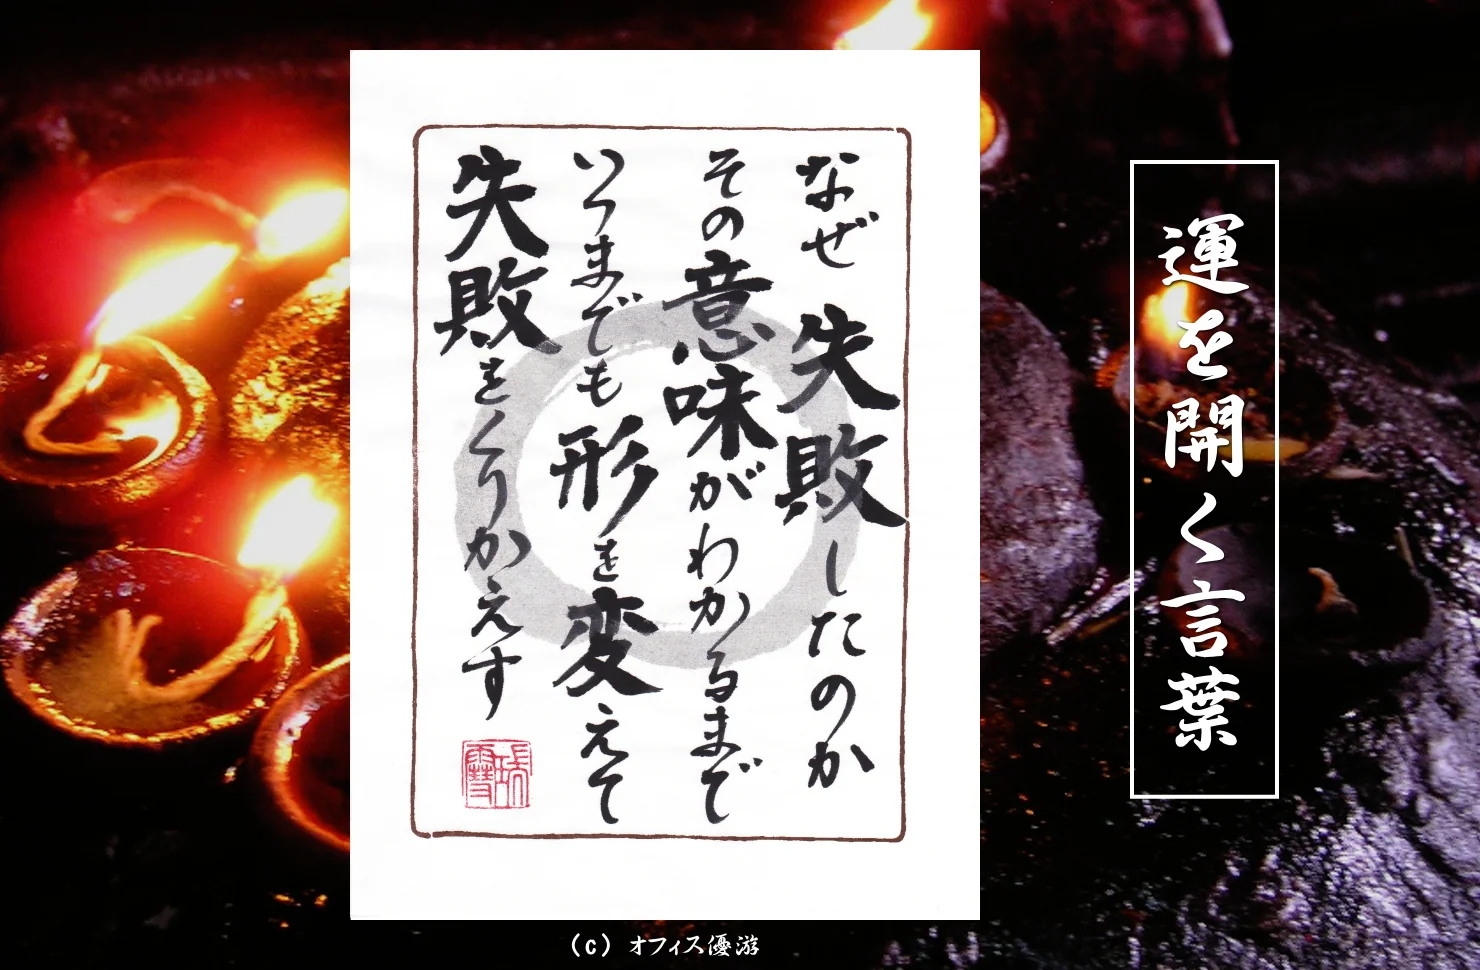 運を開く言葉
なぜ失敗したのか
その意味がわかるまで
いつまでも形を変えて
失敗をくりかえす
(c) オフィス優游